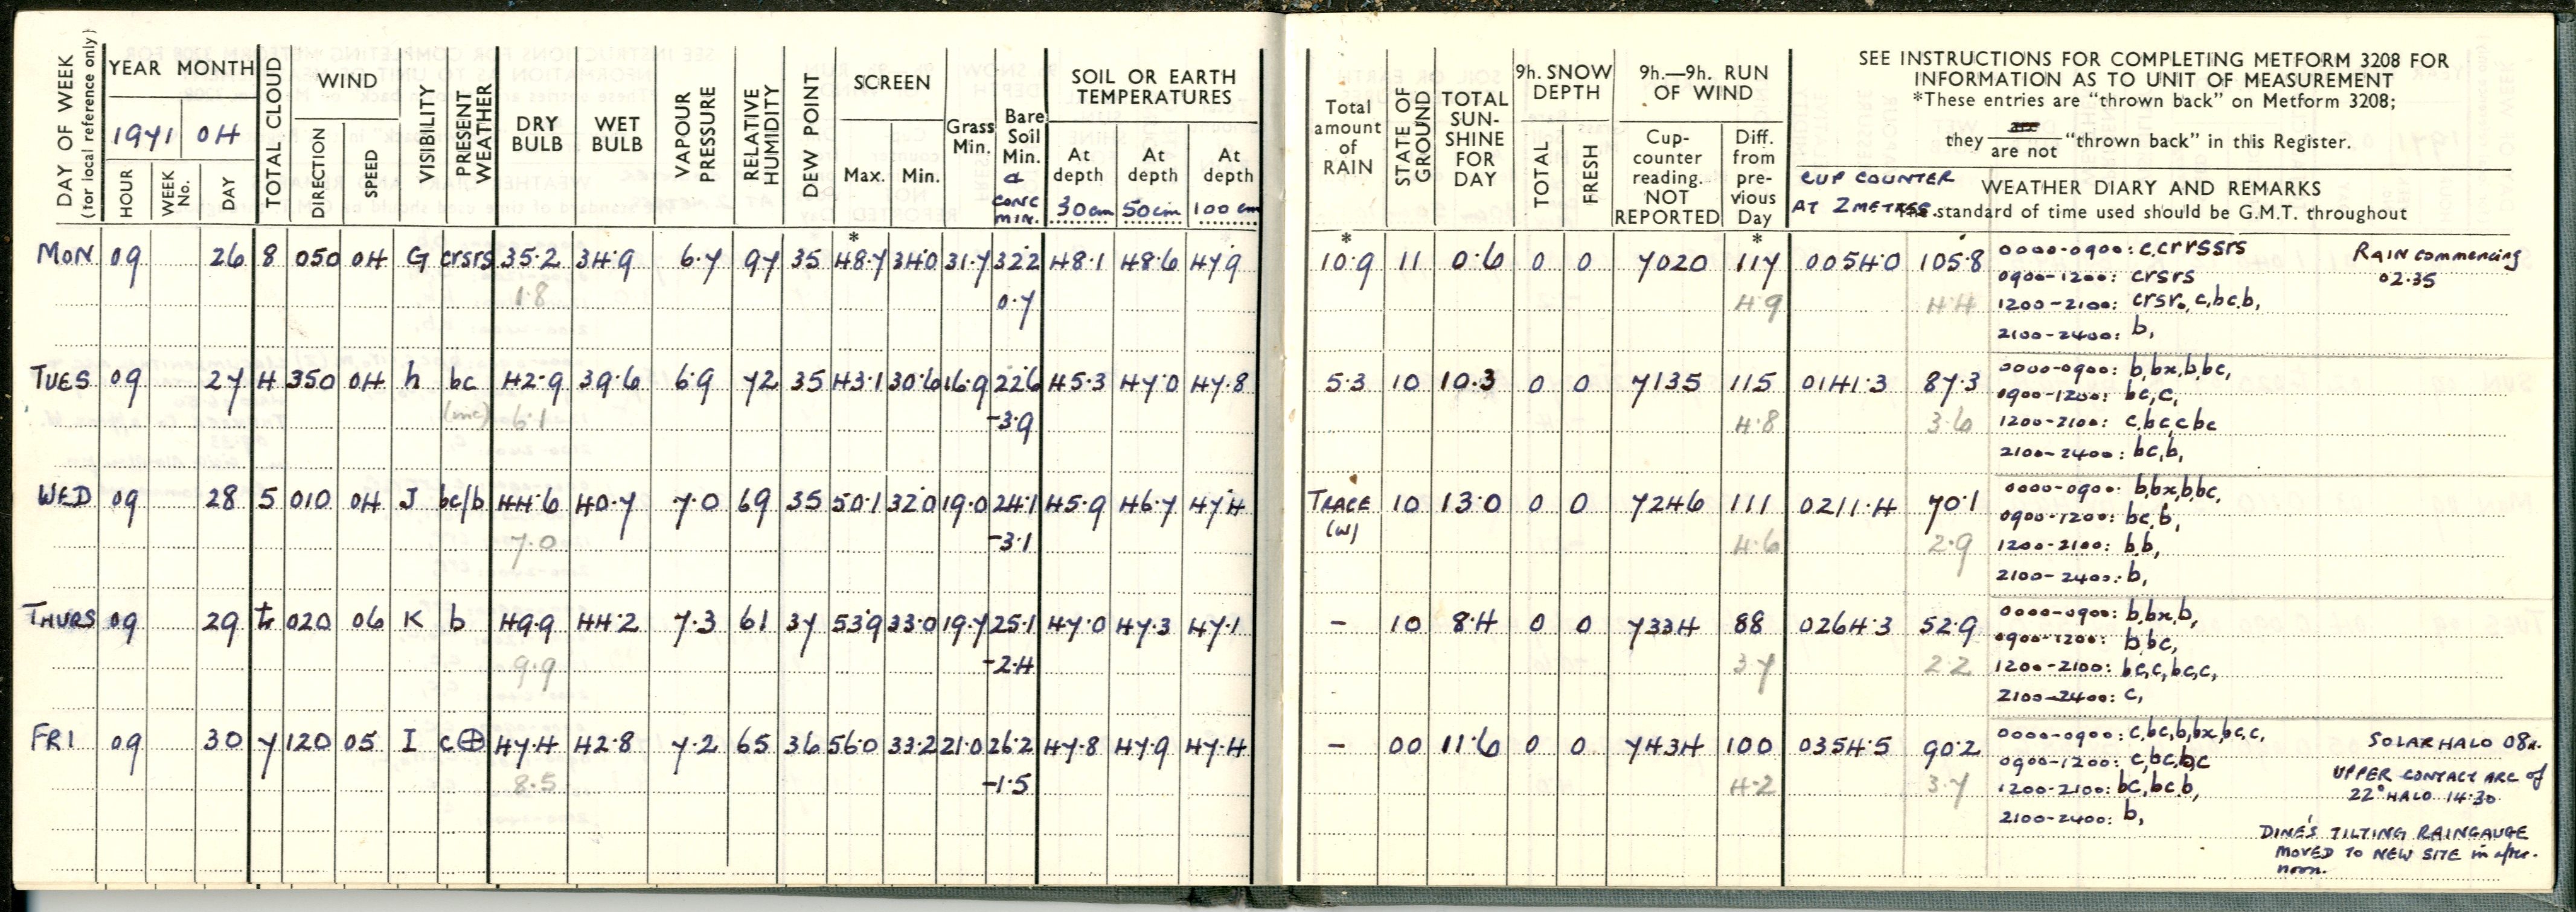 DAY OF WEEK
(for local reference only)
YEAR MONTH
1971 04
HOUR
WEEK No.
DAY
TOTAL CLOUD
WIND
DIRECTION
SPEED
VISIBILITY
PRESENT WEATHER
DRY BULB
WET BULB
VAPOUR PRESSURE
RELATIVE HUMIDITY
DEW POINT
SCREEN
Max. Min.
Grass Min.
Bare Soil Min.
a
CONC MIN.
SOIL OR EARTH TEMPERATURES
At depth At depth At depth
30cm 50cm 100cm
Total amount of RAIN
STATE OF GROUND
TOTAL SUN-SHINE FOR DAY
9h. SNOW DEPTH
TOTAL
FRESH
9h.—9h. RUN OF WIND
Cup-counter reading. NOT REPORTED
Diff. from pre-vious Day
SEE INSTRUCTIONS FOR COMPLETING METFORM 3208 FOR
INFORMATION AS TO UNIT OF MEASUREMENT
*These entries are "thrown back" on Metform 3208;
are
they are not "thrown back" in this Register.
CUP COUNTER
AT 2 METRES
WEATHER DIARY AND REMARKS
standard of time used should be G.M.T. throughout
* * *
MON 09 26 8 050 04 G crsrs 35.2 34.9 6.7 97 35 48.7 34.0 31.7 32.2 48.1 48.6 47.9 10.9 11 0.6 0 0 7020 117 0054.0 105.8
1.8 0.7 4.9 4.4
0000-0900: c,crrssrs
0900-1200: crsrs
1200-2100: crsr₀ c,bc,b,
2100-2400: b,
RAIN commencing
02.35
TUES 09 27 4 350 04 h bc 42.9 39.6 6.9 72 35 43.1 30.6 16.9 22.6 45.3 47.0 47.8 5.3 10 10.3 0 0 7135 115 0141.3 87.3
(mc) 6.1 -3.9 4.8 3.6
0000-0900: b,bx,b,bc,
0900-1200: bc,c,
1200-2100: c,bc,c,bc
2100-2400: bc,b,
WED 09 28 5 010 04 J bc/b 44.6 40.7 7.0 69 35 50.1 32.0 19.0 24.1 45.9 46.7 47.4 TRACE 10 13.0 0 0 7246 111 0211.4 70.1
(W)
7.0 -3.1 4.6 2.9
0000-0900: b,bx,b,bc,
0900-1200: bc,b,
1200-2100: b,b,
2100-2400: b,
THURS 09 29 020 06 K b 49.9 44.2 7.3 61 37 53.9 33.0 19.7 25.1 47.0 47.3 47.1 - 10 8.4 0 0 7334 88 0264.3 52.9
9.9 -2.4 3.7 2.2
0000-0900: b,bx,b,
0900-1200: b,bc,
1200-2100: bc,c,bc,c,
2100-2400: c,
FRI 09 30 7 120 05 I c⊕ 47.4 42.8 7.2 65 36 56.0 33.2 21.0 26.2 47.8 47.9 47.4 - 00 11.6 0 0 7434 100 0354.5 90.2
8.5 -1.5 4.2 3.7
0000-0900: c,bc,b,bx,bc,c,
0900-1200: c,bc,bc
1200-2100: bc,bc,b,
2100-2400: b,
SOLAR HALO
UPPER CONTACT ARC of
22° HALO 14.30
DINE'S TILTING RAINGAUGE
MOVED TO NEW SITE in after-
noon.